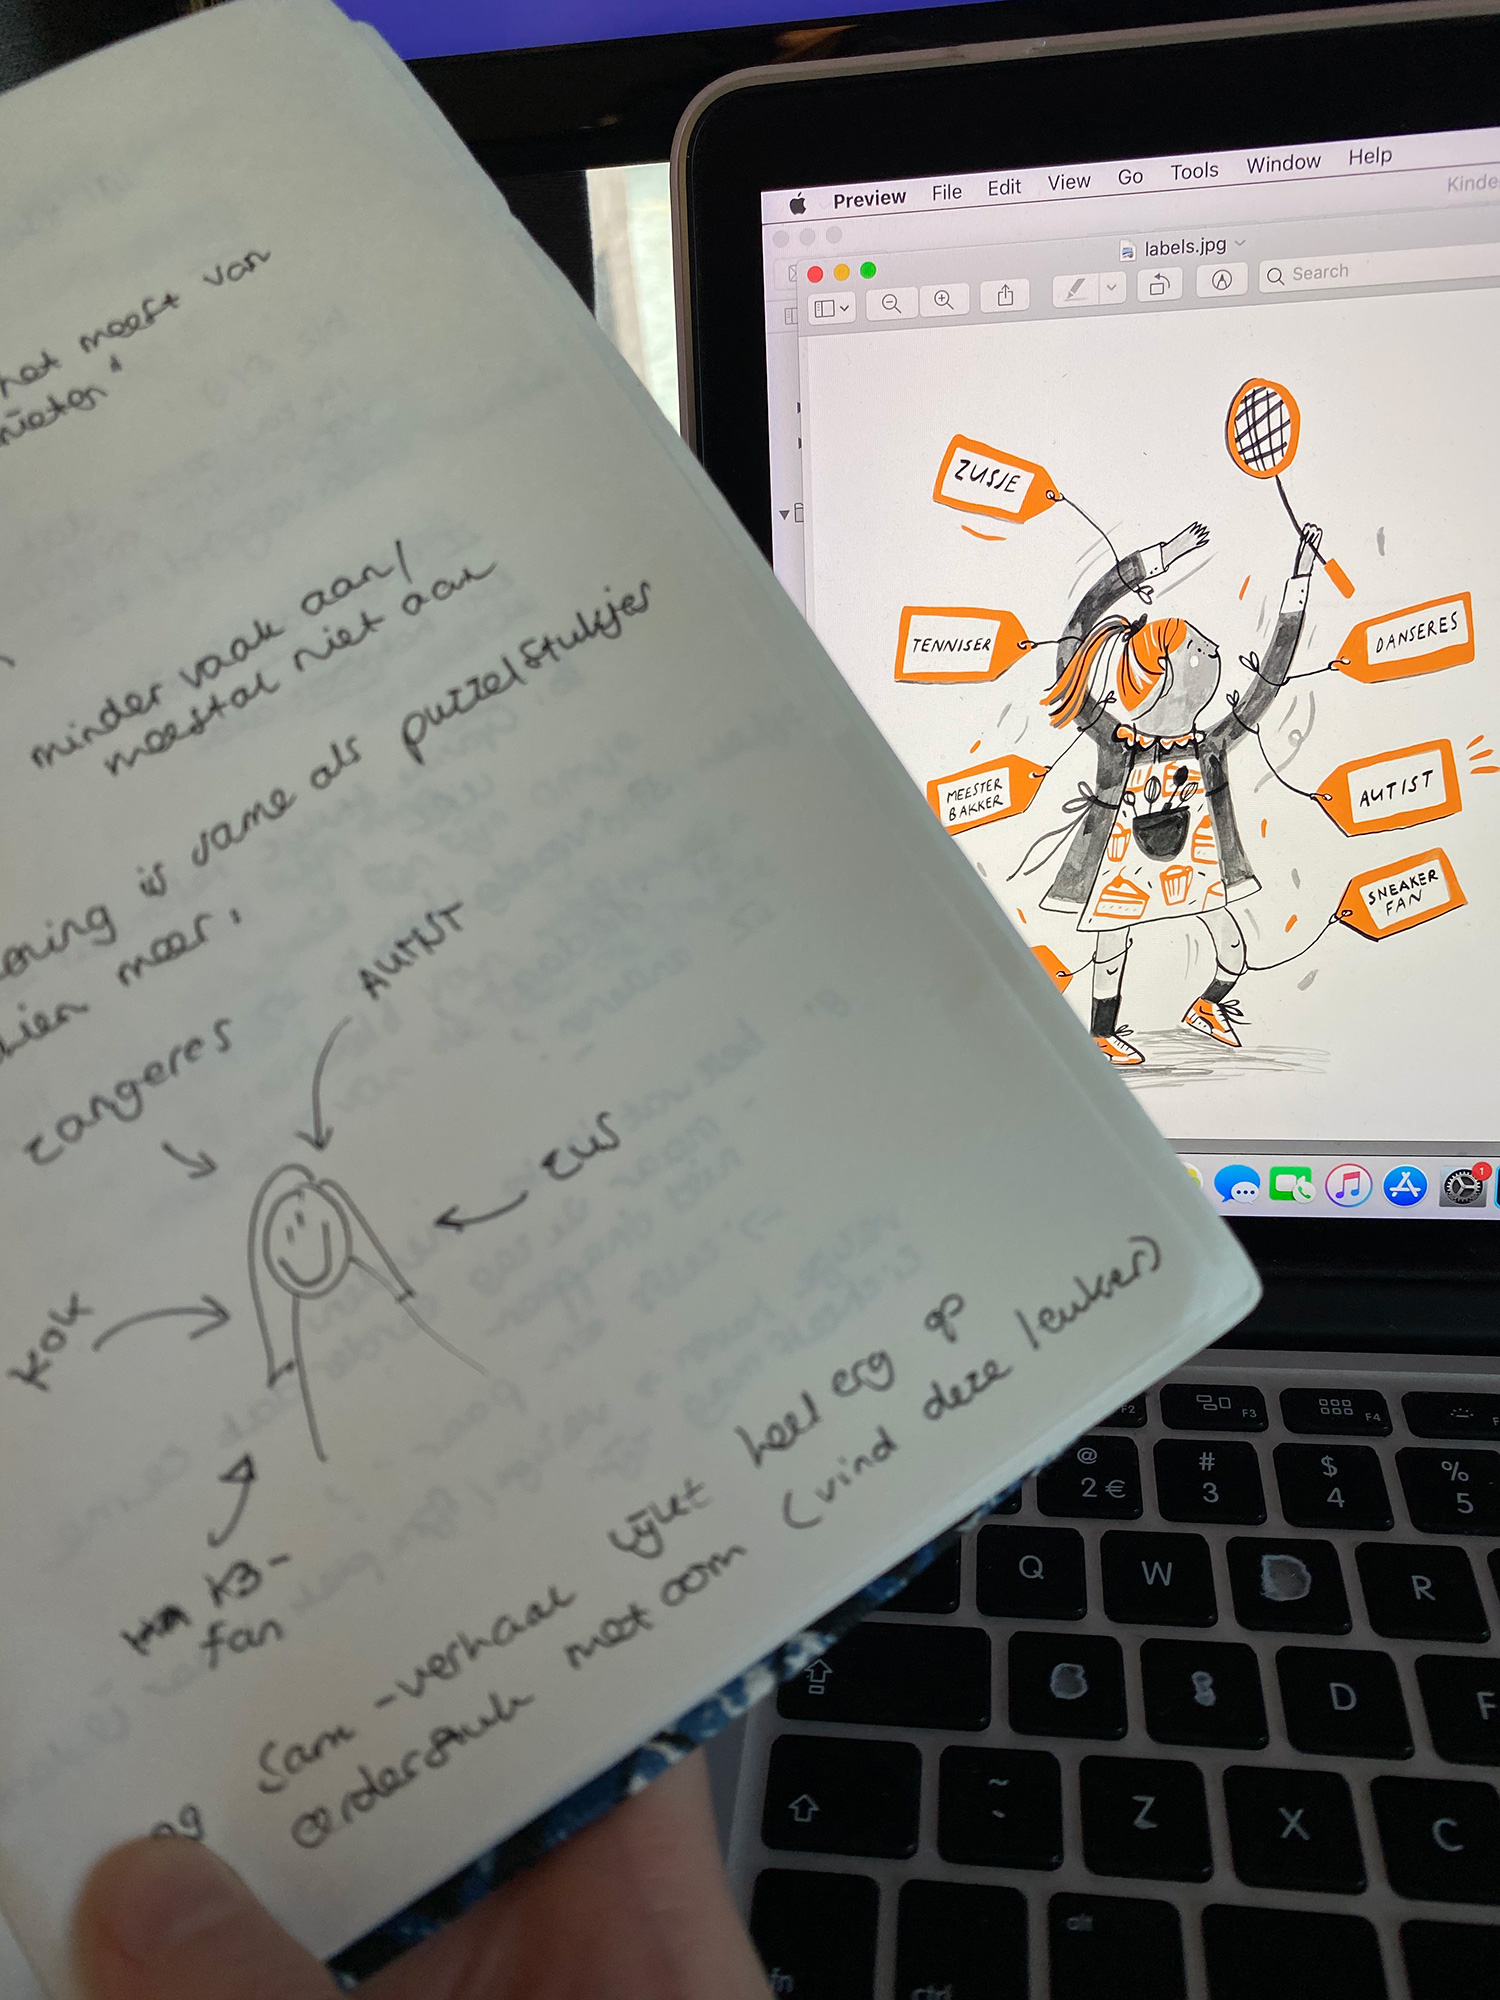 het meest van
nieten"
minder vaak aan/
meestal niet aan
ening is same als puzzelstukjes
zien meer.
zangeres
AUTIST
ZUS
KOK
K3-
fan
Sam-verhaal lijkt heel erg op
onderstuk met oom (vind deze leuker)
Preview File Edit View Go Tools Window Help
Kinde
labels.jpg
Search
ZUSJE
TENNISER
DANSERES
MEESTER
BAKKER
AUTIST
SNEAKER
FAN
1
F2 F3 F4
@ # $ %
2 € 3 4 5
Q W R
D F
~ Z X C
alt
fn ctrl